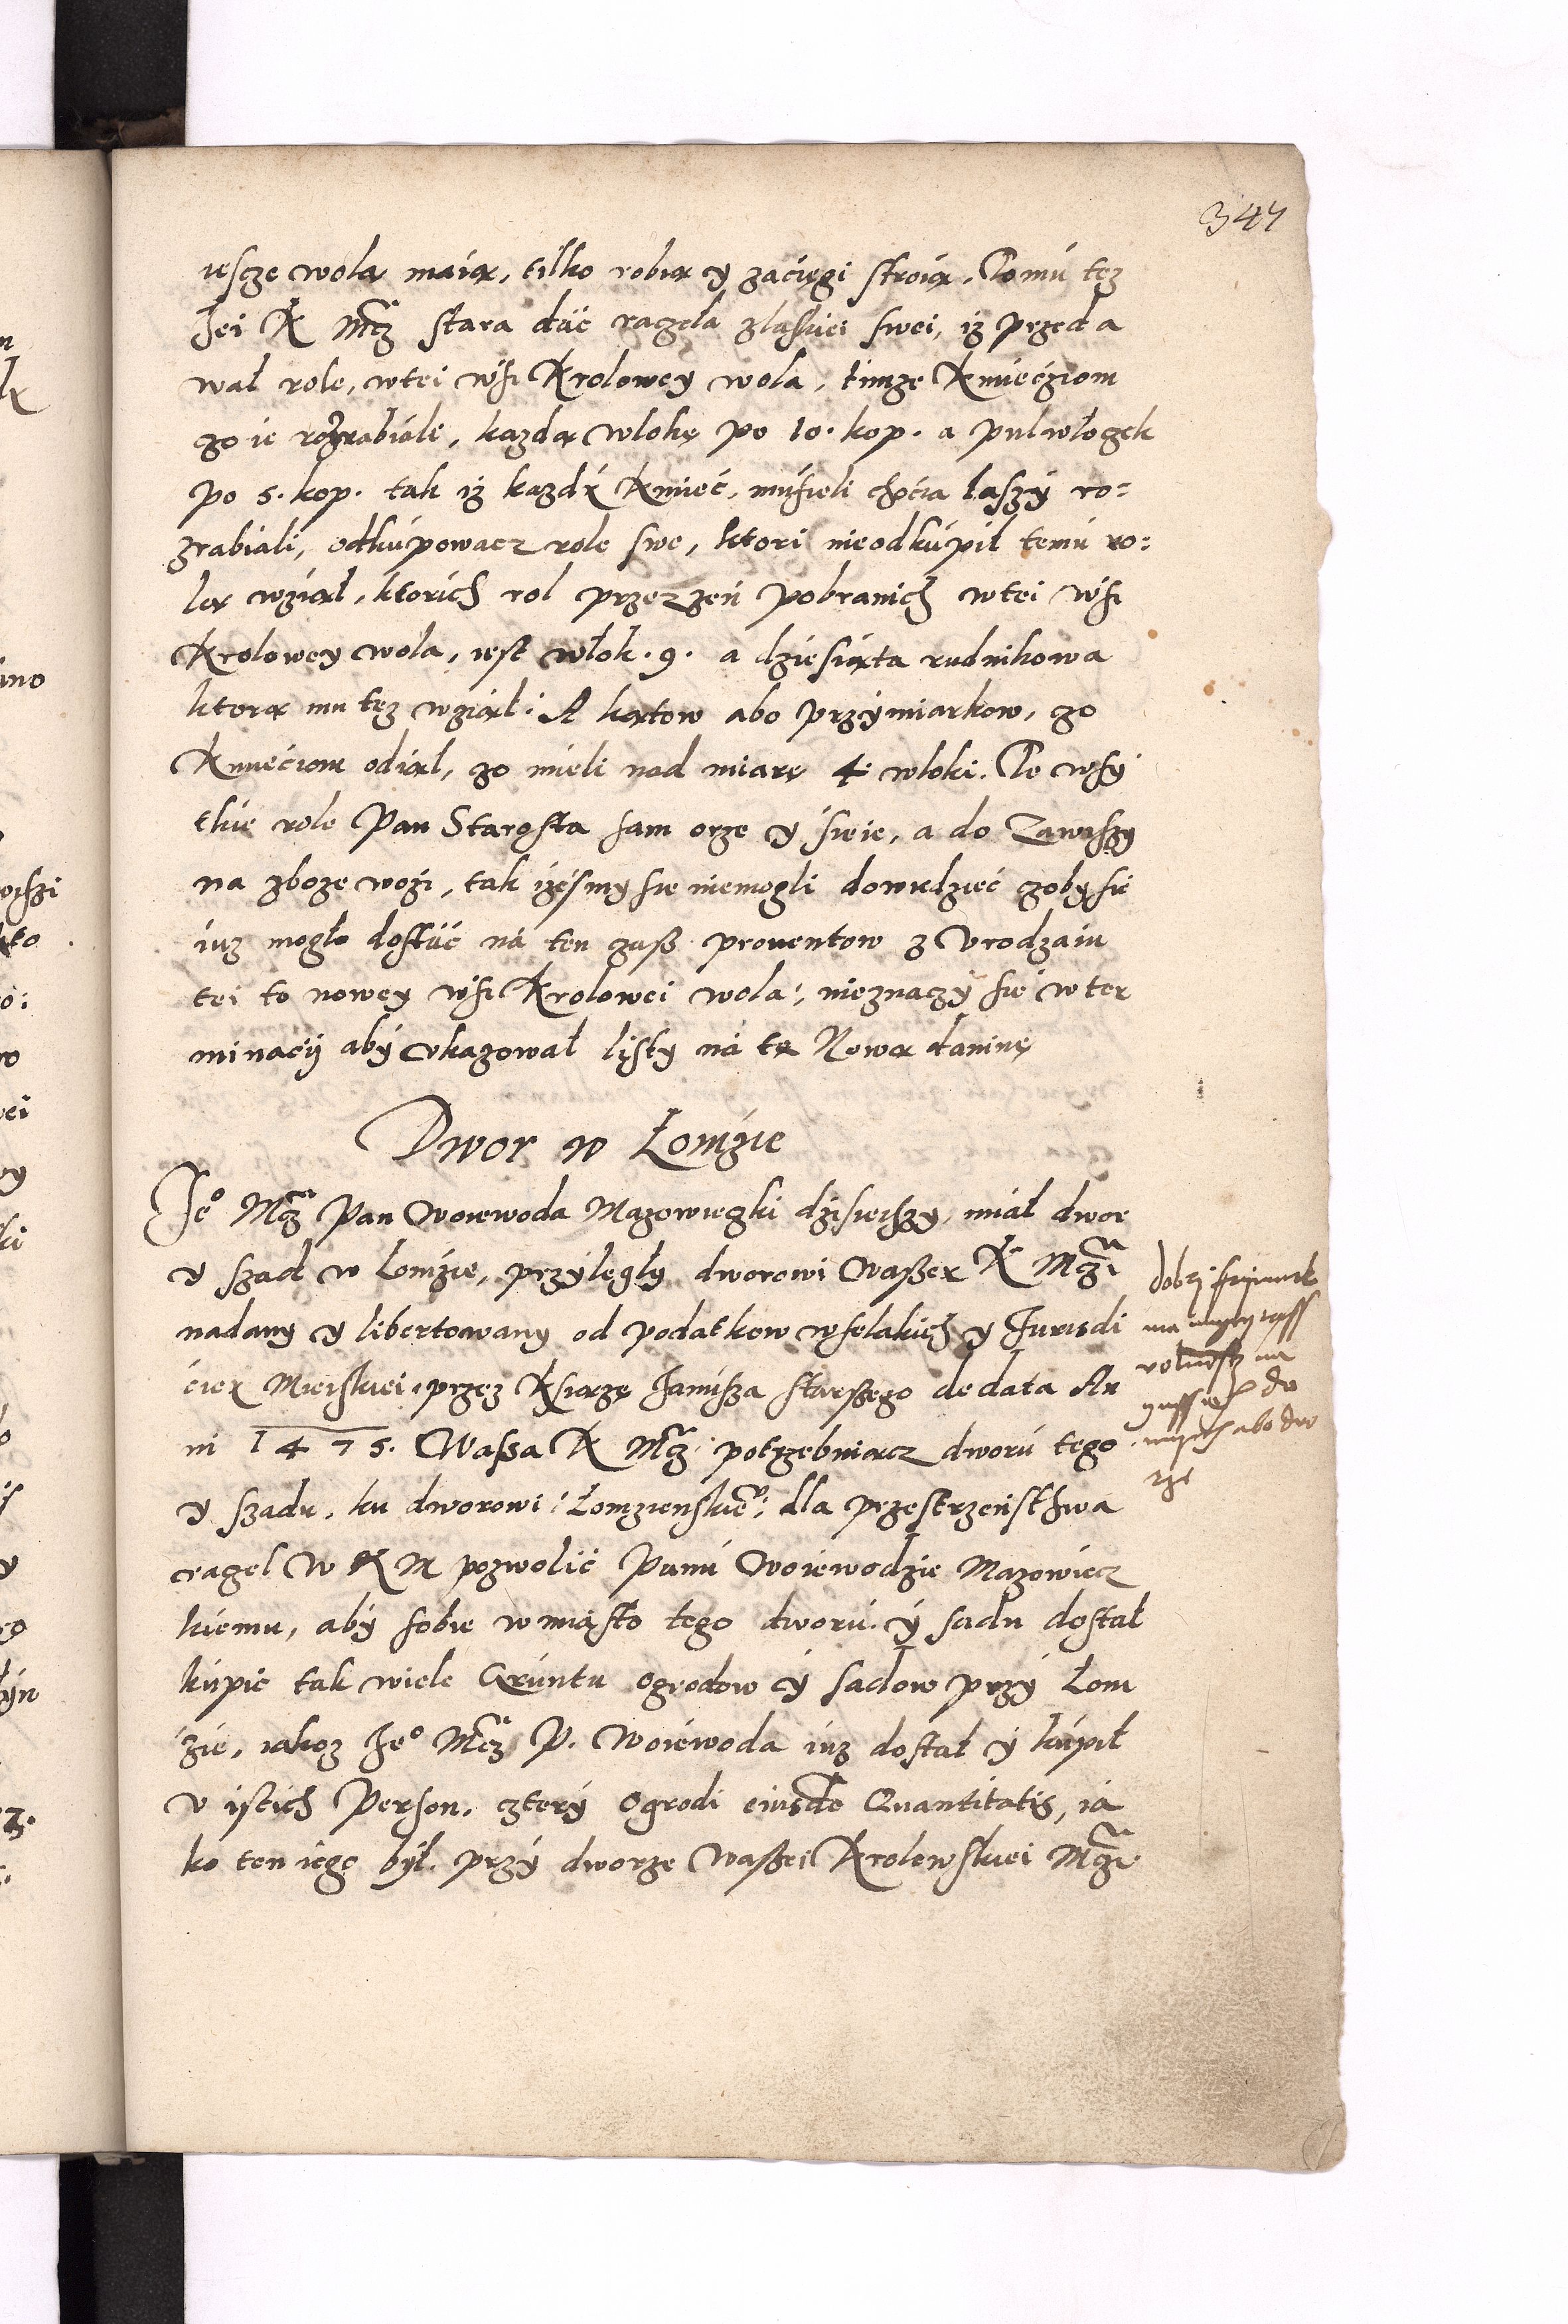 347
iescze wolą maią, tilko robią y zacięgi stroią. Tomu tez
Jei K Mcz stara dać raczeła zlaskiei swei, iz przeda
wał role, wtei wsi Krolowey wola, timze Kmiecziom
czo ie rozrabiale, kazdą wlokę po 10. kop. a pulwłoczek
po 5. kop. tak iz kazdy Kmiec, musieli choćia laszy ro:
zrabiali, odkupowacz role swe, ktori nieodkupil temu ro:
lą wziął, ktorich rol przezzeń pobranich wtei wsi
Krolowey wola, iest włok. 9. a dziesiąta rudnikowa
ktorą mu tez wziął. A kątow abo przymiarkow, czo
Kmieciom odiął, czo mieli nad miarę 4 wloki. Te wsy
tkie role Pan Starosta sam orze y sieie, a do Zawiszy
na zboze wozi, tak izesmy sie niemogli dowiedzieć czoby sie
iuz mogło dostać na ten czass prouentow z Urodzaiu
tei to nowey wsi Krolowei wola, nieznaczy sie w ter
minacij aby ukazował listy na tą Nową daninę
Dwor w Łomzie
Je° Mcz Pan Woiewoda Mazowieczki dzisieiszy, miał dwor
y szad w Łomzie, przyległy dworowi Waßei K Mczi
nadany y libertowany od podatkow wselakich y Jurisdi
ciei Mieiskiei, przez Ksiązę Janusza starßego de data An
ni 1475. Waßa K Mcz potrzebuiącz dworu tego
y szadu, ku dworowi Łomzienskie°: dla przestrzeństhwa
raczel W K M pozwolić Panu Woiewodzie Mazowiecz
kiemu, aby sobie w miasto tego dworu y sadu dostał
kupic tak wiele Gruntu ogrodow y sadow przy Łom
zie, iakoz Je° Mcz P. Woiewoda iuz dostał y kupił
u istich Person, cztery Ogrodi eiusdē Quantitatis, ia
ko ten iego był przy dworze Waßei Krolewskiei Mczi
dobrzi
na
do
abo dwo
rze